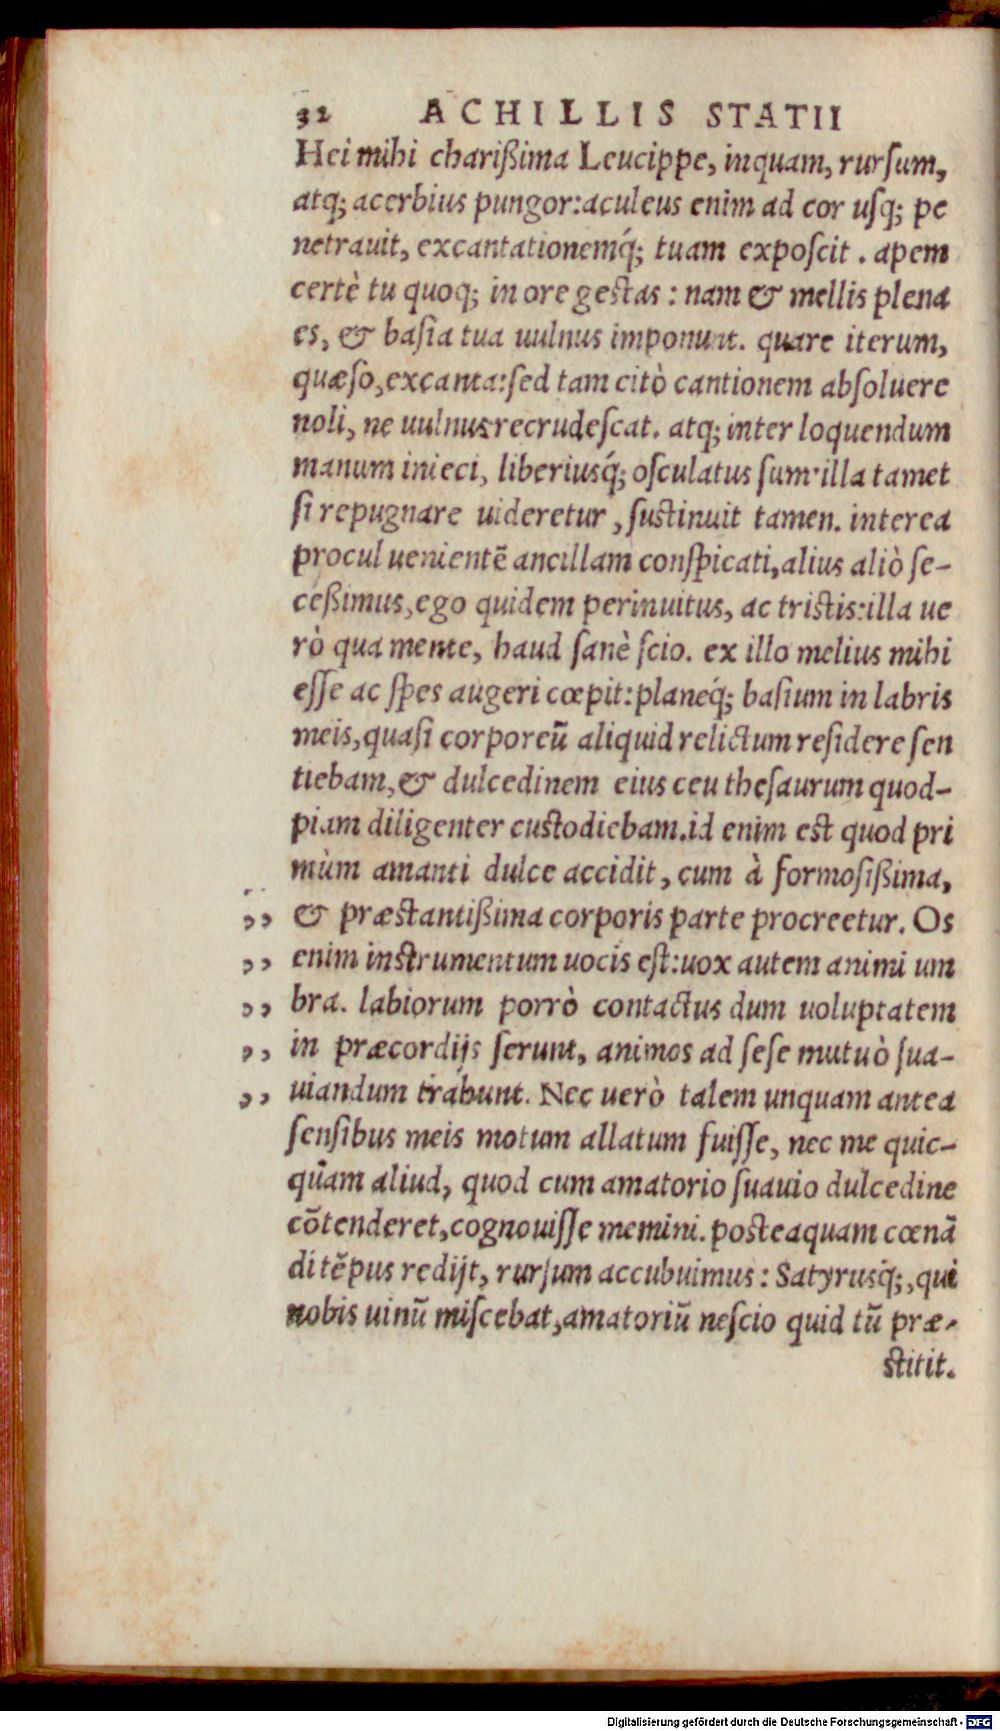 32 ACHILLIS STATII
Hei mihi charißima Leucippe, inquam, rurſum,
atq; acerbius pungor: aculeus enim ad cor uſq; pe
netrauit, excantationemq́; tuam expoſcit. apem
certè tu quoq; in ore geſtas: nam & mellis plena
es, & baſia tua uulnus imponunt. quare iterum,
quæſo, excanta: ſed tam citò cantionem abſoluere
noli, ne uulnus recrudeſcat. atq; inter loquendum
manum inieci, liberiusq́; oſculatus ſum: illa tamet
ſi repugnare uideretur, ſuſtinuit tamen. interea
procul uenientē ancillam conſpicati, alius aliò ſe-
ceßimus, ego quidem perinuitus, ac triſtis: illa ue
rò qua mente, haud ſanè ſcio. ex illo melius mihi
eſſe ac ſpes augeri cœpit: planeq́; baſium in labris
meis, quaſi corporeū aliquid relictum reſidere ſen
tiebam, & dulcedinem eius ceu theſaurum quod-
piam diligenter cuſtodiebam. id enim eſt quod pri
mùm amanti dulce accidit, cum à formoſißima,
,, & præſtantißima corporis parte procreetur. Os
,, enim inſtrumentum uocis eſt: uox autem animi um
,, bra. labiorum porrò contactus dum uoluptatem
,, in præcordijs ſerunt, animos ad ſeſe mutuò ſua-
,, uiandum trahunt. Nec uerò talem unquam antea
ſenſibus meis motum allatum fuiſſe, nec me quic-
qūam aliud, quod cum amatorio ſuauio dulcedine
cōtenderet, cognouiſſe memini. poſteaquam cœnā
di tēpus redijt, rurſum accubuimus: Satyrusq́;, qui
nobis uinū miſcebat, amatoriū neſcio quid tū præ-
ſtitit.
Digitalisierung gefördert durch die Deutsche Forschungsgemeinschaft - DFG